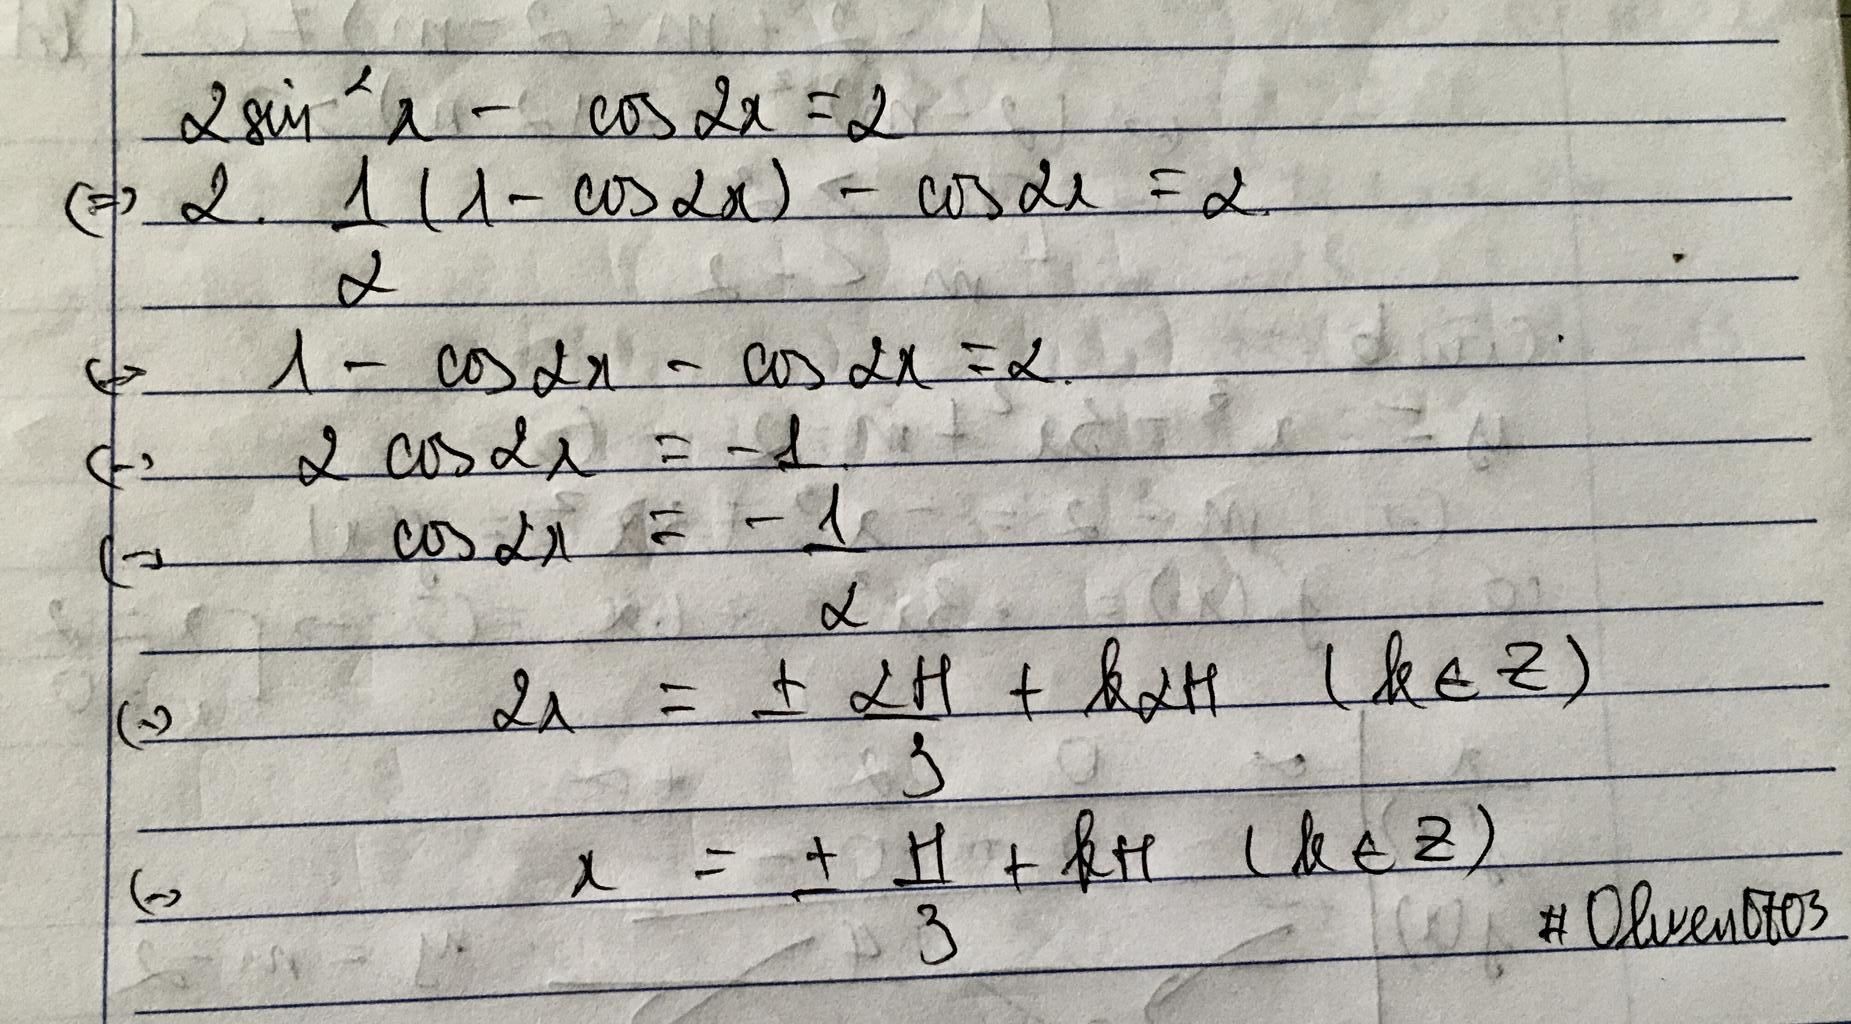 2sin²x - cos2x = 2
(=) 2. 1/2 (1 - cos2x) - cos2x = 2.
(=) 1 - cos2x - cos2x = 2.
(=) 2 cos2x = -1.
(=) cos2x = -1/2
(=) 2x = ± 2π/3 + k2π (k ∈ Z)
(=) x = ± π/3 + kπ (k ∈ Z)